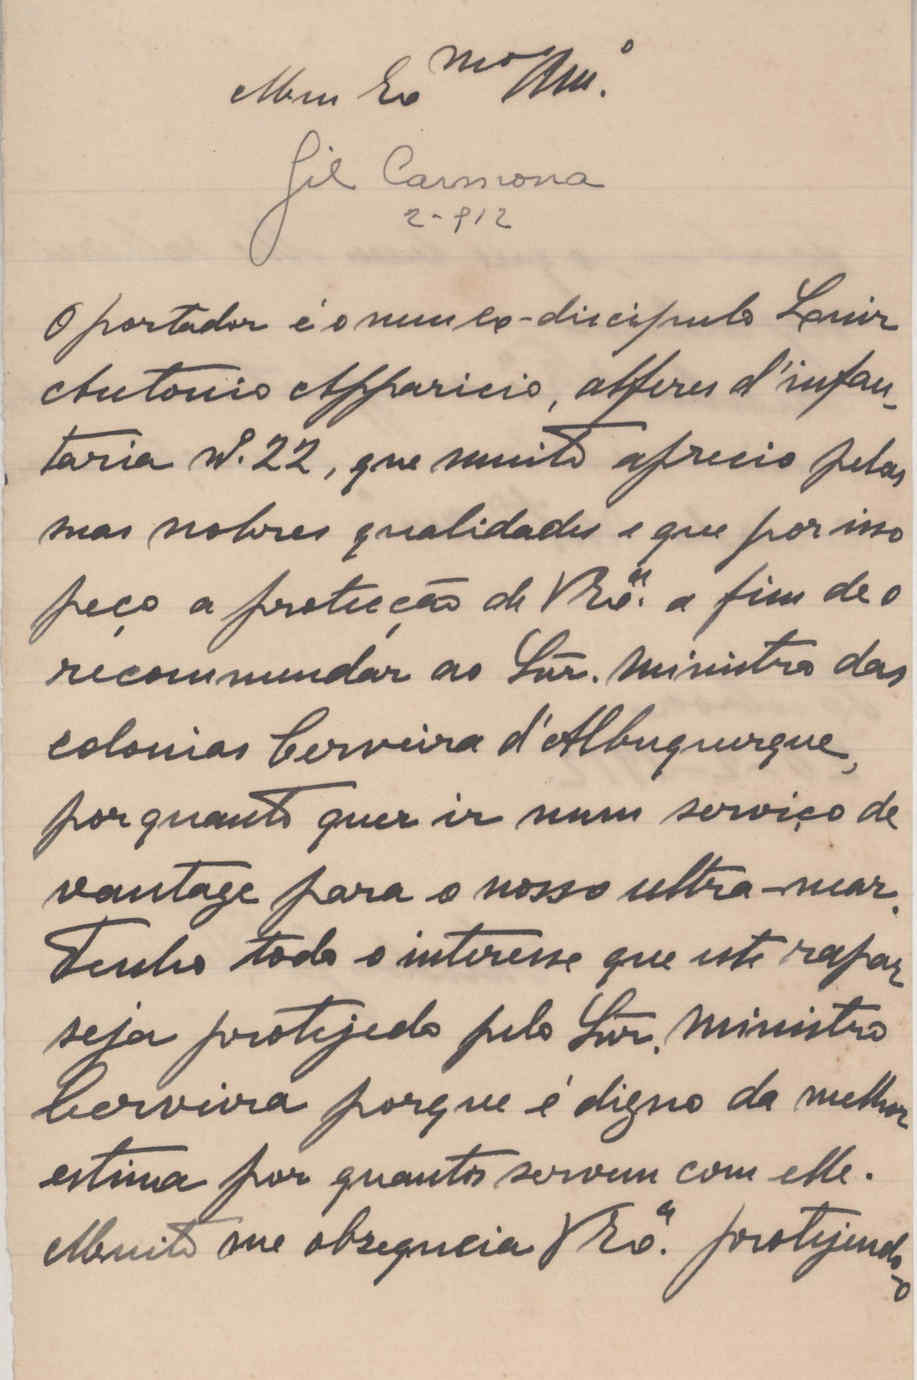 Meu Exmo Am.º
Gil Carmona
2-912
O portador é o meu ex-discipulo Luiz
Antonio Apparicio, alferes d'infan-
taria nº. 22, que muito aprecio pelas
suas nobres qualidades e que por isso
peço a protecção de V Exª. a fim de o
recommendár ao Snr. Ministro das
colonias Cerveira d'Albuquerque,
porquanto quer ir num serviço de
vantage para o nosso ultra-mar.
Tenho todo o interesse que este rapaz
seja protejedo pelo Snr. Ministro
Cerveira porque é digno da melhor
estima por quantos servem com elle.
Muito me obsequeia V Exª. protejendo-o